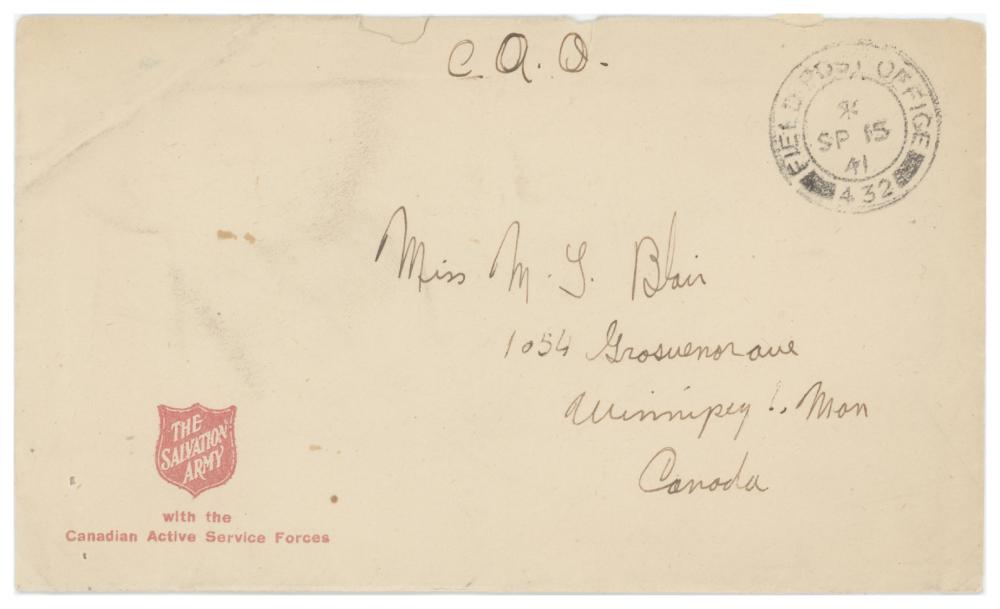 C. A. O.
FIELD POST OFFICE
SP 15
41
432
Miss M. G. Blair
1054 Grosvenor ave
Winnipeg. Man
Canada
THE
SALVATION
ARMY
with the
Canadian Active Service Forces